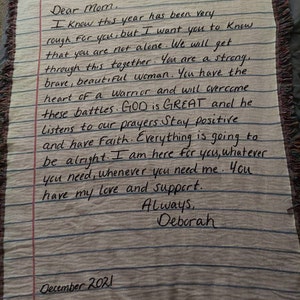 Dear Mom,
I know this year has been very
rough for you, but I want you to know
that you are not alone. We will get
through this together. You are a strong,
brave, beautiful woman. You have the
heart of a warrior and will overcome
these battles. GOD is GREAT and he
listens to our prayers. Stay positive
and have faith. Everything is going to
be alright. I am here for you, whatever
you need, whenever you need me. You
have my love and support.
Always,
Deborah
December 2021